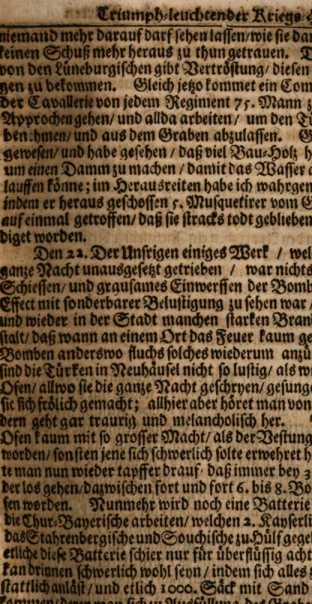 Triumph-leuchtender Kriegs-
niemand mehr darauf darf sehen lassen/wie sie dan
keinen Schuß mehr heraus zu thun getrauen.
von den Lüneburgischen gibt Vertröstung/diesen
gen zu bekommen. Gleich jetzo kommet ein Com
der Cavallerie von jedem Regiment 75. Mann z
Approchen gehen/und allda arbeiten/ um den Tü
benehmen/und aus dem Graben abzulassen.
gewesen/und habe gesehen/daß viel Bau-Holz h
um einen Damm zu machen/damit das Wasser a
lauffen könne; im Herausreiten habe ich wahrgen
indem er heraus geschossen 5. Musquetirer vom
auf einmal getroffen/daß sie stracks todt geblieben
diget worden.
Den 22. Der Unsrigen einiges Werk / wel
ganze Nacht unausgesetzt getrieben / war nichts
Schiessen/und grausames Einwerffen der Bomb
Effect mit sonderbarer Belustigung zu sehen war/
und wieder in der Stadt manchen starken Bran
stalt/daß wann an einem Ort das Feuer kaum ge
Bomben anderswo flugs solches wiederum anzü
sind die Türken in Neuhäusel nicht so lustig/als wi
Ofen/allwo sie die ganze Nacht geschryen/gesunge
sie sich frölich gemacht; allhier aber höret man von
dern geht gar traurig und melancholisch her.
Ofen kaum mit so grosser Macht/als der Vestung
worden/sonsten jene sich schwerlich solte erwehret h
te man nun wieder tapffer drauf/daß immer bey 3
der los gehen/dazwischen fort und fort 6. bis 8. Bo
fen worden. Nunmehr wird noch eine Batterie
die Chur-Bayerische arbeiten/welchen 2. Kayserli
das Stahrenbergische und Souchische zu Hülf gege
etliche diese Batterie schier nur für überflüssig acht
kan drinnen schwerlich wohl seyn/indem sich alles z
stattlich anläst/und etlich 1000. Säck mit Sand